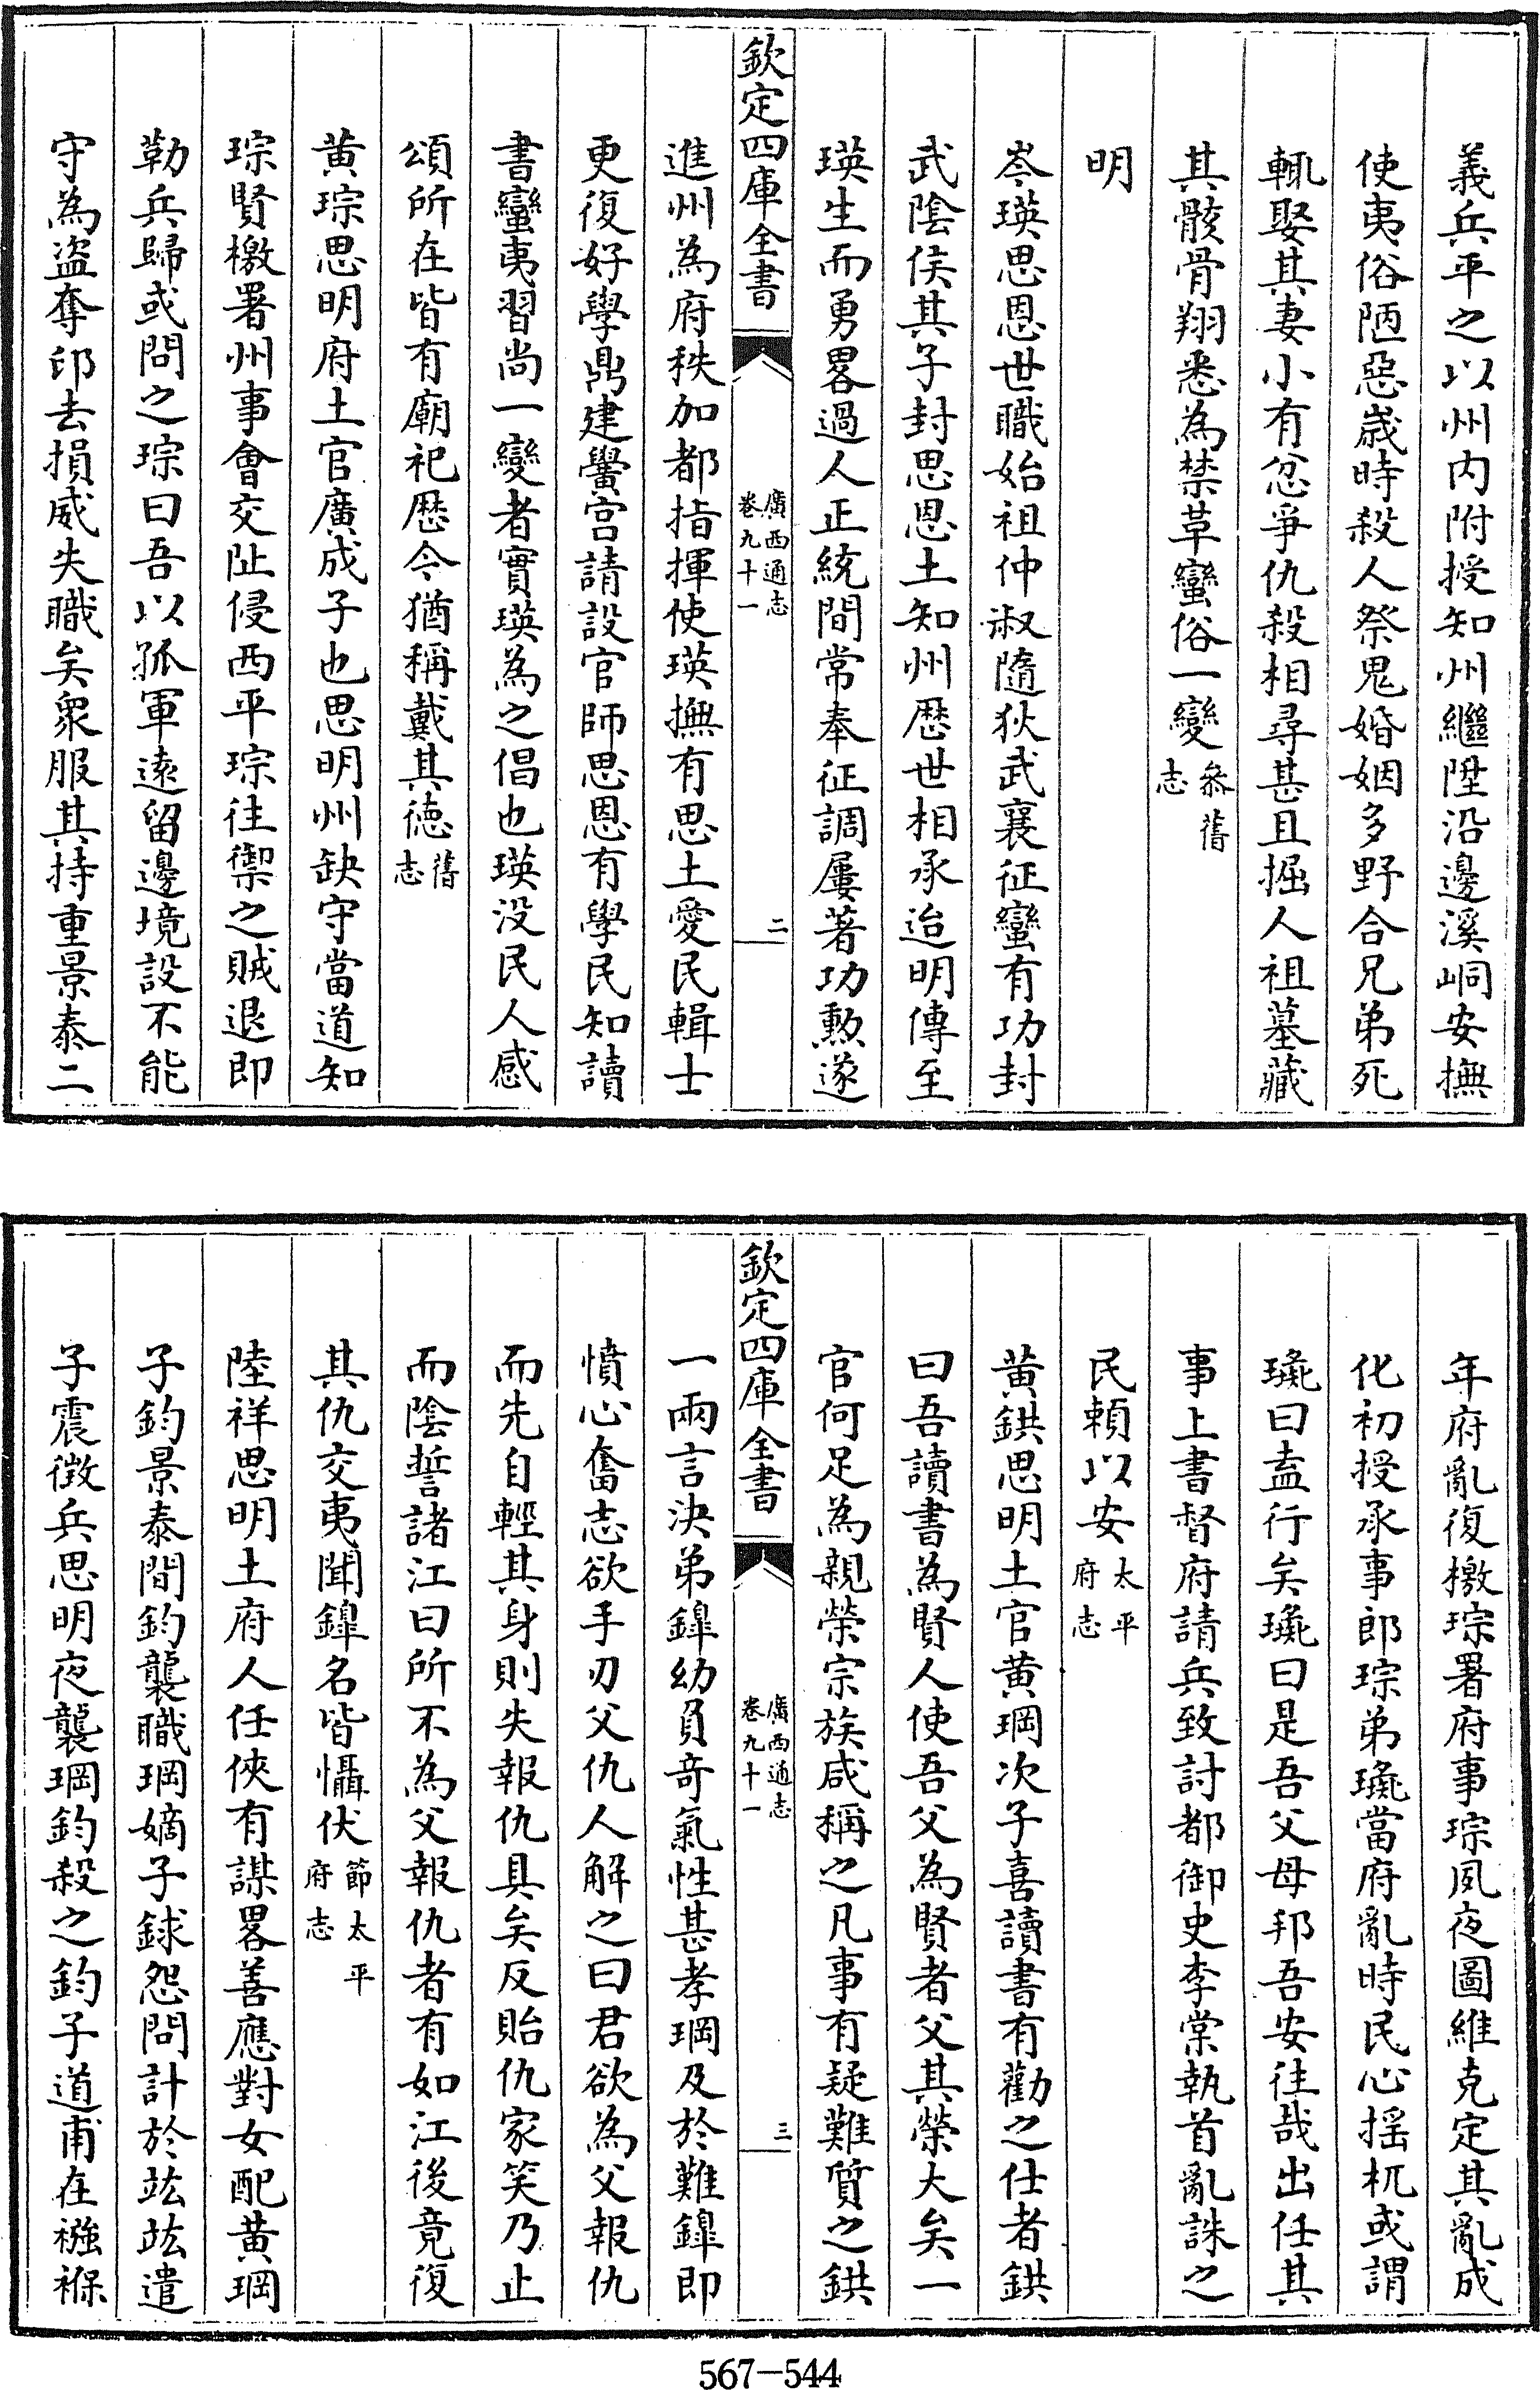 義兵平之以州内附授知州繼陞沿邊溪峒安撫
使夷俗陋惡歲時殺人祭鬼婚姻多野合兄弟死
輒娶其妻小有忿爭仇殺相尋甚且掘人祖墓藏
其骸骨翔悉為禁革蠻俗一變叅舊志
明
岑瑛思恩世職始祖仲淑隨狄武襄征蠻有功封
武陰侯其子封思恩土知州歴世相承迨明傳至
瑛生而勇畧過人正統間常奉征調屢著功勲遂
欽定四庫全書 廣西通志 卷九十一 二
進州為府秩加都指揮使瑛撫有思土愛民輯士
更復好學鼎建黌宫請設官師思恩有學民知讀
書蠻夷習尚一變者實瑛為之倡也瑛没民人感
頌所在皆有廟祀歴今猶稱戴其徳舊志
黄琮思明府土官廣成子也思明州缺守當道知
琮賢檄署州事會交阯侵西平琮往禦之賊退即
勒兵歸或問之琮曰吾以孤軍遠留邊境設不能
守為盜奪印去損威失職矣衆服其持重景泰二
年府亂復檄琮署府事琮夙夜圖維克定其亂成
化初授承事郎琮弟㻽當府亂時民心揺杌或謂
㻽曰盍行矣㻽曰是吾父母邦吾安往哉出任其
事上書督府請兵致討都御史李棠執首亂誅之
民賴以安太平府志
黄鉷思明土官黄㺬次子喜讀書有勸之仕者鉷
曰吾讀書為賢人使吾父為賢者父其榮大矣一
官何足為親榮宗族咸稱之凡事有疑難質之鉷
欽定四庫全書 廣西通志 卷九十一 三
一兩言決弟鏵幼負竒氣性甚孝㺬及於難鏵即
憤心奮志欲手刃父仇人解之曰君欲為父報仇
而先自輕其身則失報仇具矣反貽仇家笑乃止
而陰誓諸江曰所不為父報仇者有如江後竟復
其仇交夷聞鏵名皆懾伏節太平府志
陸祥思明土府人任俠有謀畧善應對女配黄㺬
子鈞景泰間鈞襲職㺬嫡子銶怨問計於竑竑遣
子震徴兵思明夜襲㺬鈞殺之鈞子道甫在襁褓
567-544